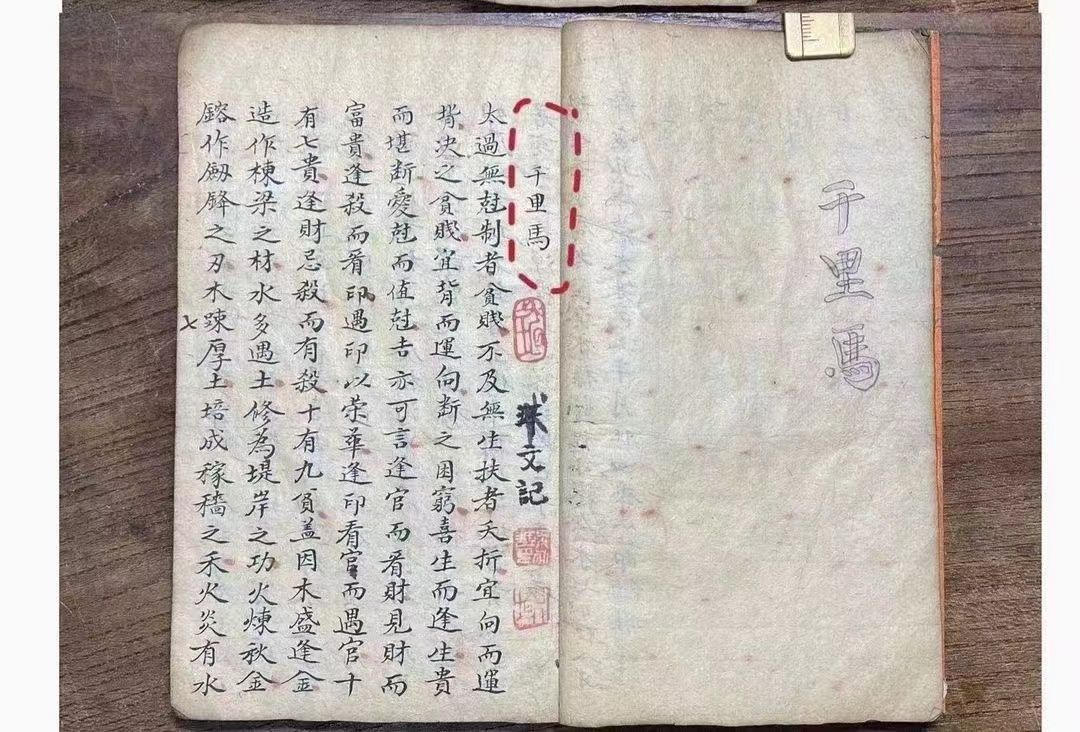 千里馬
千里馬
球文記
太過無尅制者貧賤不及無生扶者夭折宜向而運
背决之貧賤宜背而運向断之困窮喜生而逢生貴
而堪断愛尅而值尅吉亦可言逢官而看財見財而
富貴逢殺而看印遇印以荣華逢印看官而遇官十
有七貴逢財忌殺而有殺十有九貧盖因木盛逢金
造作棟梁之材水多遇土修為堤岸之功火煉秋金
鎔作劔鋒之刃木疎厚土培成稼穡之禾火炎有水
七